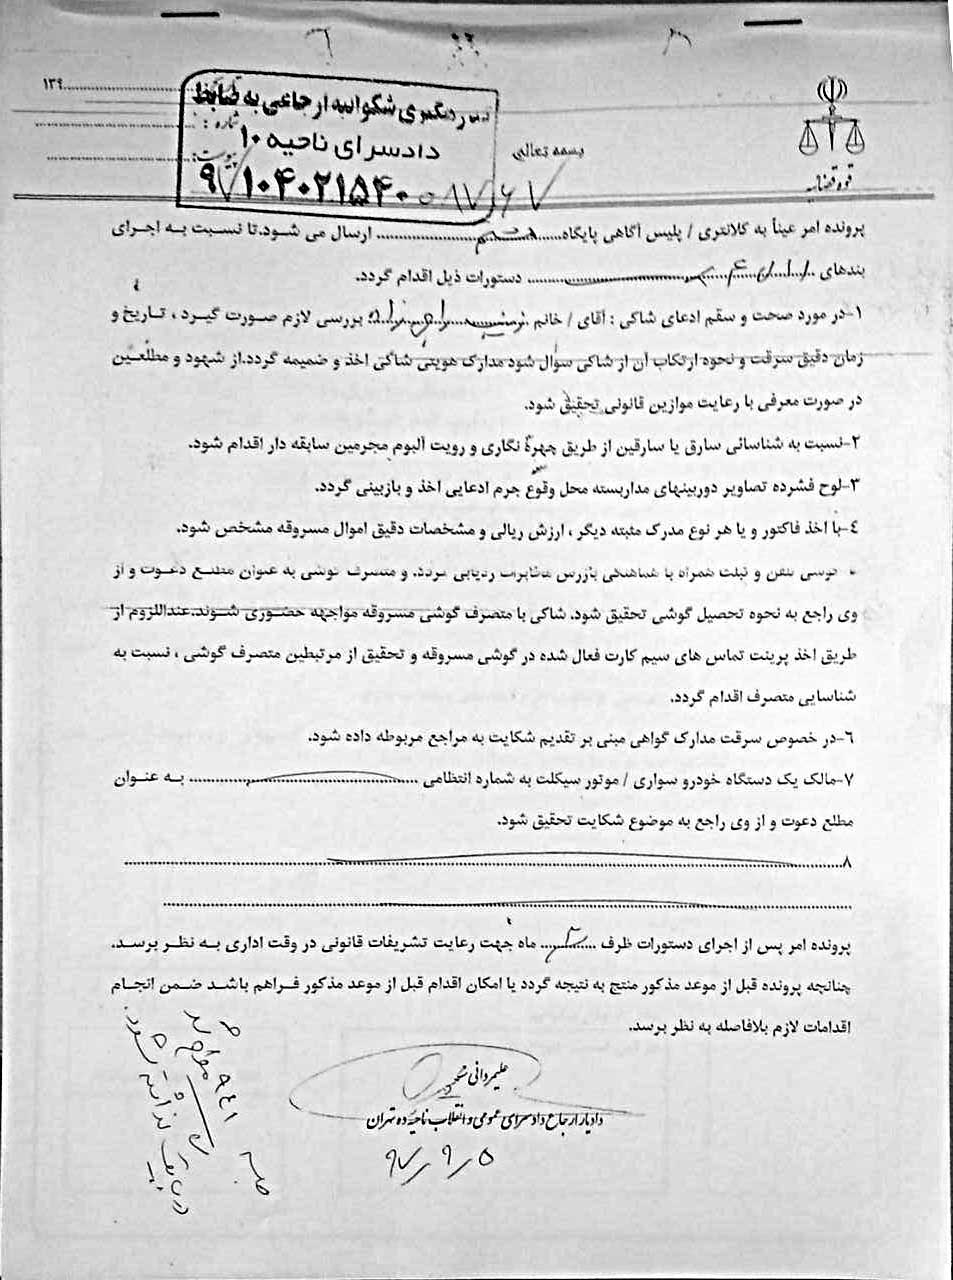 ۱۳۹
سر دبگیری شکواییه ارجاعی به ضابط
شماره :
دادسرای ناحیه ۱۰
بسمه تعالی
پیوست:
قوه قضاییه
پرونده امر عیناً به کلانتری / پلیس آگاهی پایگاه هشتم ارسال می شود.تا نسبت به اجرای
بندهای دستورات ذیل اقدام گردد.
۱-در مورد صحت و سقم ادعای شاکی : آقای / خانم بررسی لازم صورت گیرد ، تاریخ و
زمان دقیق سرقت و نحوه ارتکاب آن از شاکی سؤال شود مدارک هویتی شاکی اخذ و ضمیمه گردد.از شهود و مطلعین
در صورت معرفی با رعایت موازین قانونی تحقیق شود.
۲-نسبت به شناسائی سارق یا سارقین از طریق چهرهٔ نگاری و رویت آلبوم مجرمین سابقه دار اقدام شود.
۳-لوح فشرده تصاویر دوربینهای مداربسته محل وقوع جرم ادعایی اخذ و بازبینی گردد.
۴-با اخذ فاکتور و یا هر نوع مدرک مثبته دیگر ، ارزش ریالی و مشخصات دقیق اموال مسروقه مشخص شود.
گوشی تلفن و تبلت همراه با هماهنگی بازرس مخابرات ردیابی گردد. و متصرف گوشی به عنوان مطلع دعوت و از
وی راجع به نحوه تحصیل گوشی تحقیق شود. شاکی با متصرف گوشی مسروقه مواجهه حضوری شوند.عنداللزوم از
طریق اخذ پرینت تماس های سیم کارت فعال شده در گوشی مسروقه و تحقیق از مرتبطین متصرف گوشی ، نسبت به
شناسایی متصرف اقدام گردد.
۶-در خصوص سرقت مدارک گواهی مبنی بر تقدیم شکایت به مراجع مربوطه داده شود.
۷-مالک یک دستگاه خودرو سواری / موتور سیکلت به شماره انتظامی به عنوان
مطلع دعوت و از وی راجع به موضوع شکایت تحقیق شود.
۸
پرونده امر پس از اجرای دستورات ظرف ماه جهت رعایت تشریفات قانونی در وقت اداری به نظر برسد.
چنانچه پرونده قبل از موعد مذکور منتج به نتیجه گردد یا امکان اقدام قبل از موعد مذکور فراهم باشد ضمن انجام
اقدامات لازم بلافاصله به نظر برسد.
علیمردانی
دادیار ارجاع دادسرای عمومی و انقلاب ناحیه ده تهران
۹۷/۹/۵